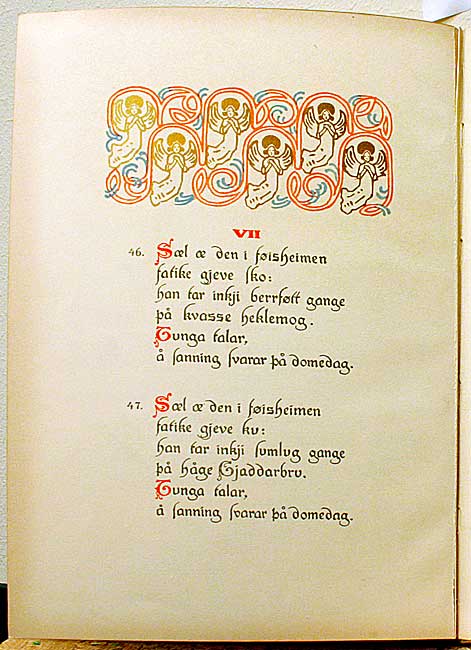 VII
46. Sæl æ den i føisheimen
fatike gjeve sko:
han tar inkji berrføtt gange
på kvasse heklemog.
Tunga talar,
å sanning svarar på domedag.
47. Sæl æ den i føisheimen
fatike gjeve ku:
han tar inkji sumlug gange
på håge Gjaddarbru.
Tunga talar,
å sanning svarar på domedag.